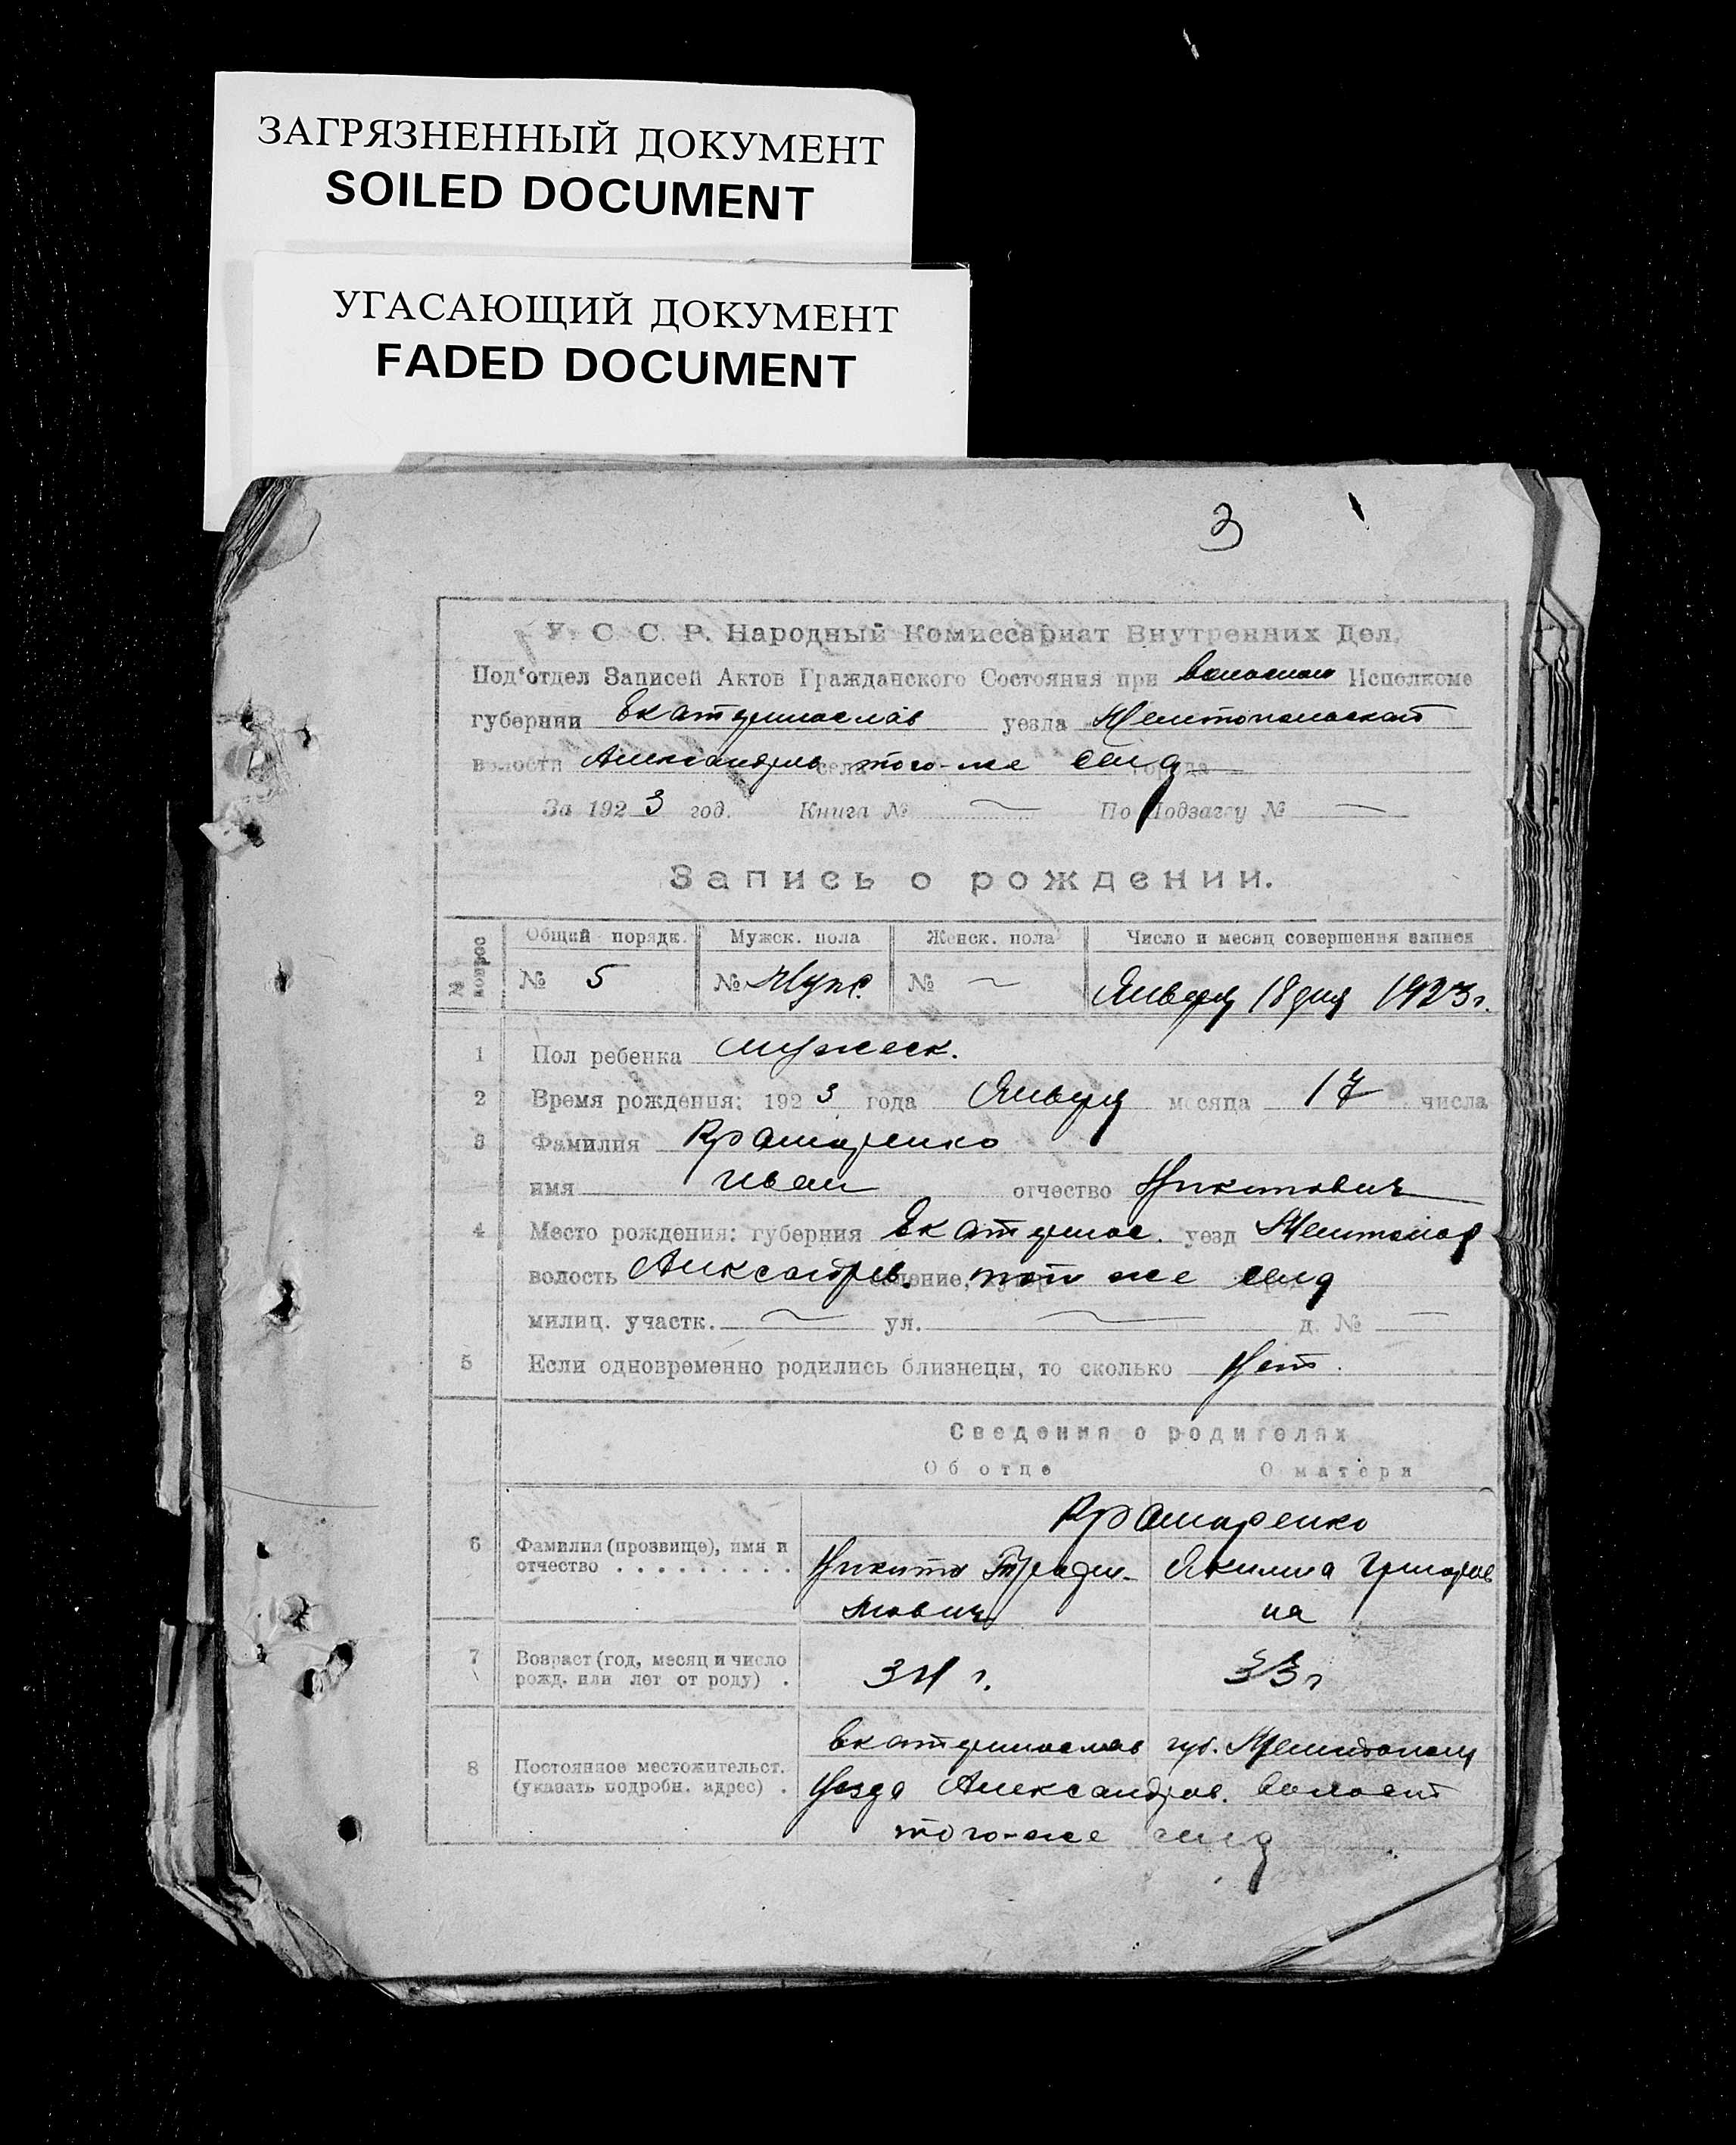 ЗАГРЯЗНЕННЫЙ ДОКУМЕНТ
SOILED DOCUMENT
УГАСАЮЩИЙ ДОКУМЕНТ
FADED DOCUMENT
3
У. С. С. Р. Народный Комиссариат Внутренних Дел.
Под'отдел Записей Актов Гражданского Состояния при Исполкоме
губернии Екатеринослав уезда Мелитопольского
волости Александров села того-же села города
За 1923 год. Книга № — По Подзагсу № —
Запись о рождении.
№ вопрос Общий порядк. Мужск. пола Женск. пола Число и месяц совершения записи
№ 5 № Муж. № — Января 18 дня 1923 г.
1 Пол ребенка мужеск.
2 Время рождения: 1923 года Января месяца 17 числа
3 Фамилия Крамаренко
имя Иван отчество Никитович
4 Место рождения: губерния Екатеринос. уезд
волость Александров. селение, того же села
милиц. участк. — ул. — д. № —
5 Если одновременно родились близнецы, то сколько Нет.
Сведения о родителях
Об отце О матери
Крамаренко
6 Фамилия (прозвище), имя и отчество . . . . . . . . . Никита Акилина Григоров
на
7 Возраст (год, месяц и число рожд. или лет от роду) . 34 г. 33 г
8 Постоянное местожительст. (указать подробн. адрес) . Екатеринослав губ.
Уезда Александров. Волост
того-же села